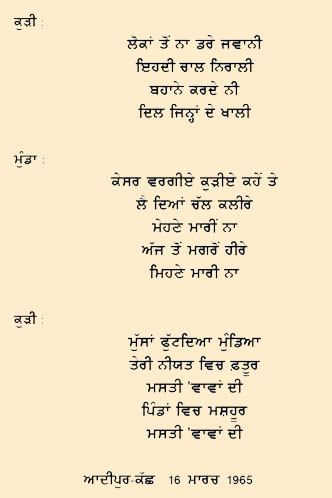 ਕੁੜੀ :
ਲੋਕਾਂ ਤੋਂ ਨਾ ਡਰੇ ਜਵਾਨੀ
ਇਹਦੀ ਚਾਲ ਨਿਰਾਲੀ
ਬਹਾਨੇ ਕਰਦੇ ਨੀ
ਦਿਲ ਜਿਨ੍ਹਾਂ ਦੇ ਖਾਲੀ
ਮੁੰਡਾ :
ਕੇਸਰ ਵਰਗੀਏ ਕੁੜੀਏ ਕਹੇਂ ਤੇ
ਲੈ ਦਿਆਂ ਚੱਲ ਕਲੀਰੇ
ਮੇਹਣੇ ਮਾਰੀਂ ਨਾ
ਅੱਜ ਤੋਂ ਮਗਰੋਂ ਹੀਰੇ
ਮਿਹਣੇ ਮਾਰੀ ਨਾ
ਕੁੜੀ :
ਮੁੱਸਾਂ ਫੁੱਟਦਿਆ ਮੁੰਡਿਆ
ਤੇਰੀ ਨੀਯਤ ਵਿਚ ਫ਼ਤੂਰ
ਮਸਤੀ 'ਵਾਵਾਂ ਦੀ
ਪਿੰਡਾਂ ਵਿਚ ਮਸ਼ਹੂਰ
ਮਸਤੀ 'ਵਾਵਾਂ ਦੀ
ਆਦੀਪੁਰ-ਕੱਛ 16 ਮਾਰਚ 1965